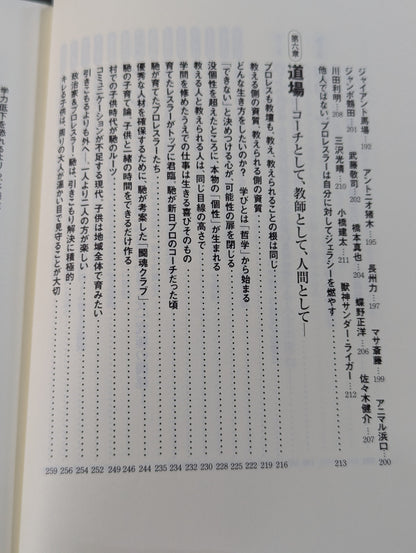 ジャイアント馬場…192 アントニオ猪木…195 長州力…197 マサ斎藤…199 アニマル浜口…200
ジャンボ鶴田 武藤敬司 橋本真也…204 蝶野正洋…206 佐々木健介…207
川田利明…208 三沢光晴…210 小橋建太…211 獣神サンダー・ライガー…212
他人ではない、プロレスラーは自分に対してジェラシーを燃やす……213
第六章 道場 ―コーチとして、教師として、人間として―
プロレスも教壇も、教え、教えられることの根は同じ……216
教える側の資質、教えられる側の資質……219
どんな生き方をしたいのか? 学びとは「哲学」から始まる……222
「できない」と決めつける心が、可能性の扉を閉じる……225
没個性を超えたところに、本物の「個性」が生まれる……228
教える人と教えられる人は、同じ目線の高さで……230
学問を修めたうえでの仕事は生きる喜びそのもの……232
育てたレスラーがトップに君臨 馳が新日プロのコーチだった頃……234
馳が育てたプロレスラーたち……235
優秀な人材を確保するために、馳が考案した「闘魂クラブ」……244
馳の子育て論、子供と一緒の時間をできるだけ作る……246
村での子供時代が馳のルーツ……249
コミュニケーションが不足する現代、子供は地域全体で育みたい……252
引きこもるよりも外へ――一人より二人の方が楽しい……254
政治家&プロレスラー・馳は、引きこもり解決に積極的……256
キレる子供は、周りの大人が温かい目で見守ることが大切……259
学力低下を恐れるより、